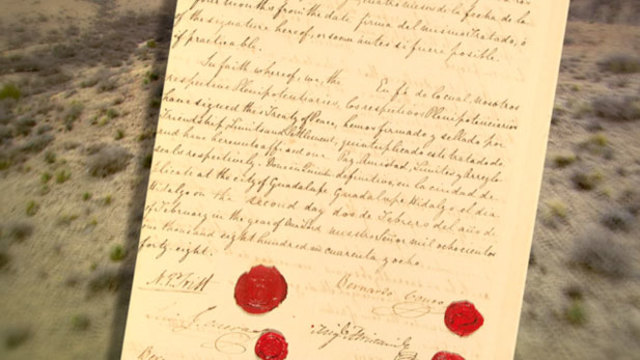 four months from the date firma del mismo Tratado, ó
of the signature hereof, or sooner antes si fuere posible.
if practicable.
In faith whereof, we, the En fé de lo cual, nosotros
respective Plenipotentiaries, los respectivos Plenipotenciarios
have signed this Treaty of Peace, hemos firmado y sellado por
Friendship, Limits and Settlement, quintuplicado este tratado de
and have hereunto affixed our Paz, Amistad, Limites y Arreglo
seals respectively. Done in Quintu- definitivo en la ciudad de
plicate at the city of Guadalupe Guadalupe Hidalgo el dia
Hidalgo on the second day dos de Febrero del año de
of February in the year of Our Lord nuestro Señor mil ochocientos
one thousand eight hundred and cuarenta y ocho.
forty-eight.
N. P. Trist
Bernardo Couto